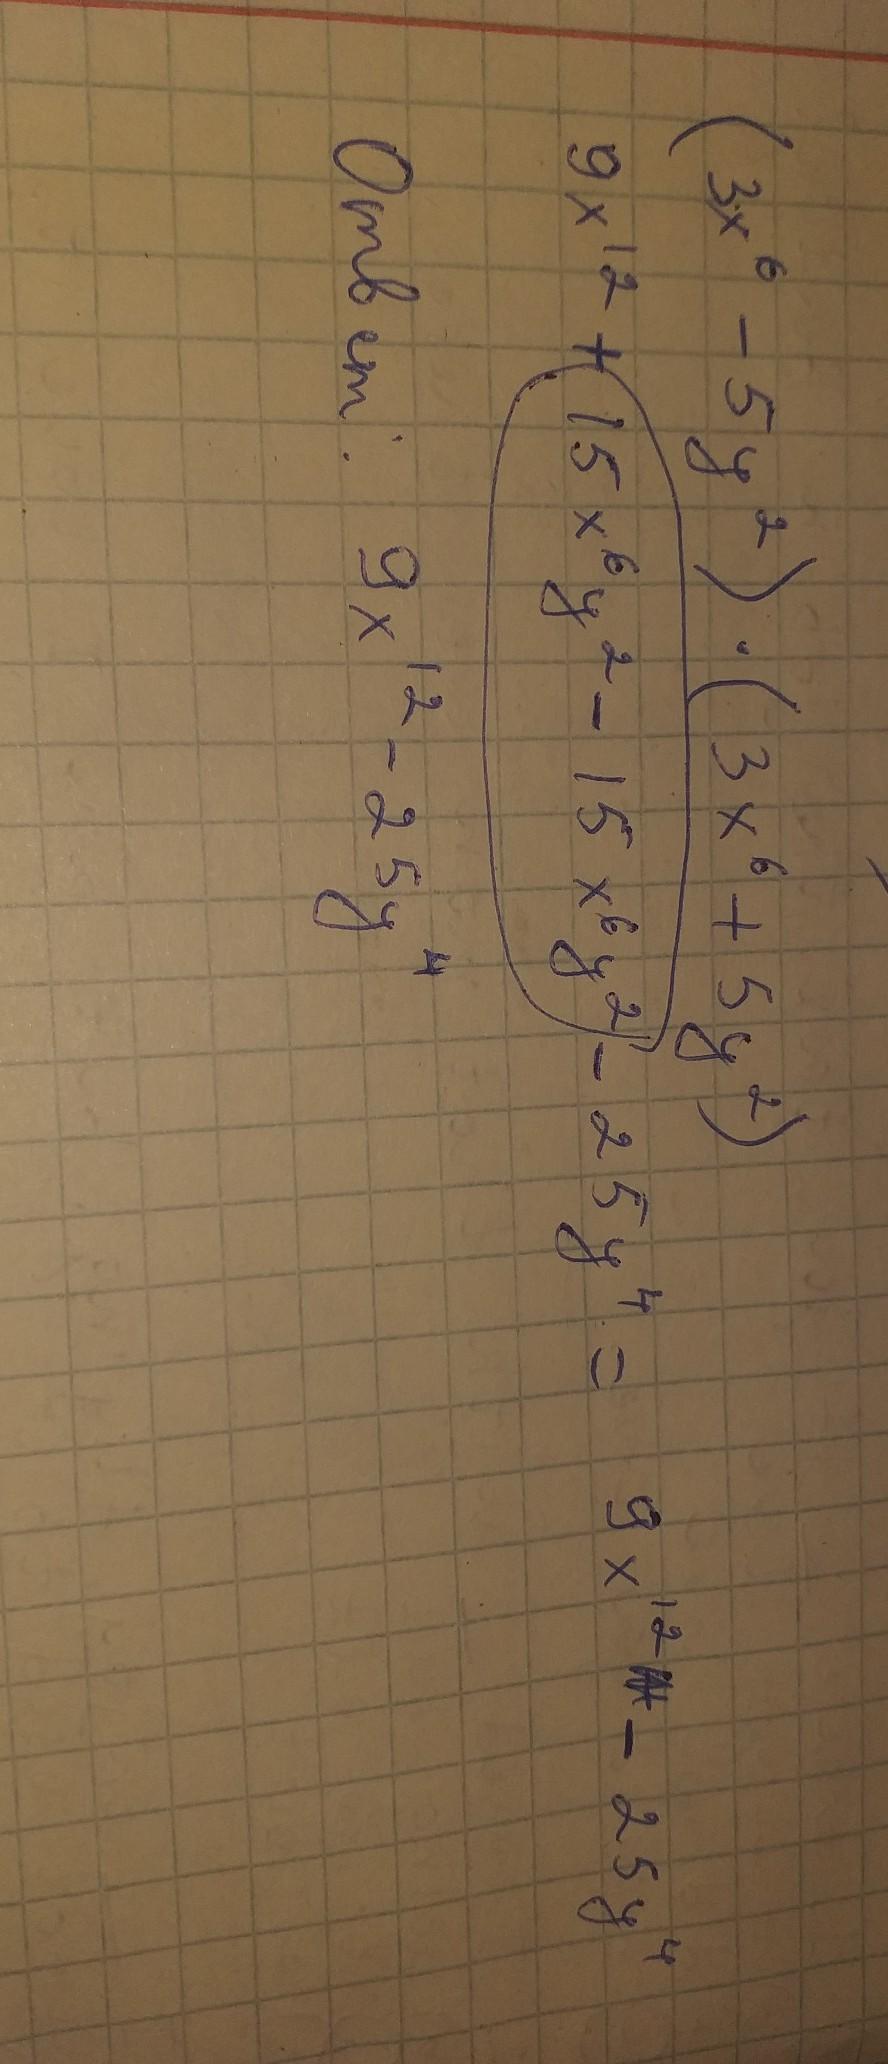 (3x⁶ - 5y²) · (3x⁶ + 5y²)
9x¹² + 15x⁶y² - 15x⁶y² - 25y⁴ = 9x¹² - 25y⁴
Ответ: 9x¹² - 25y⁴